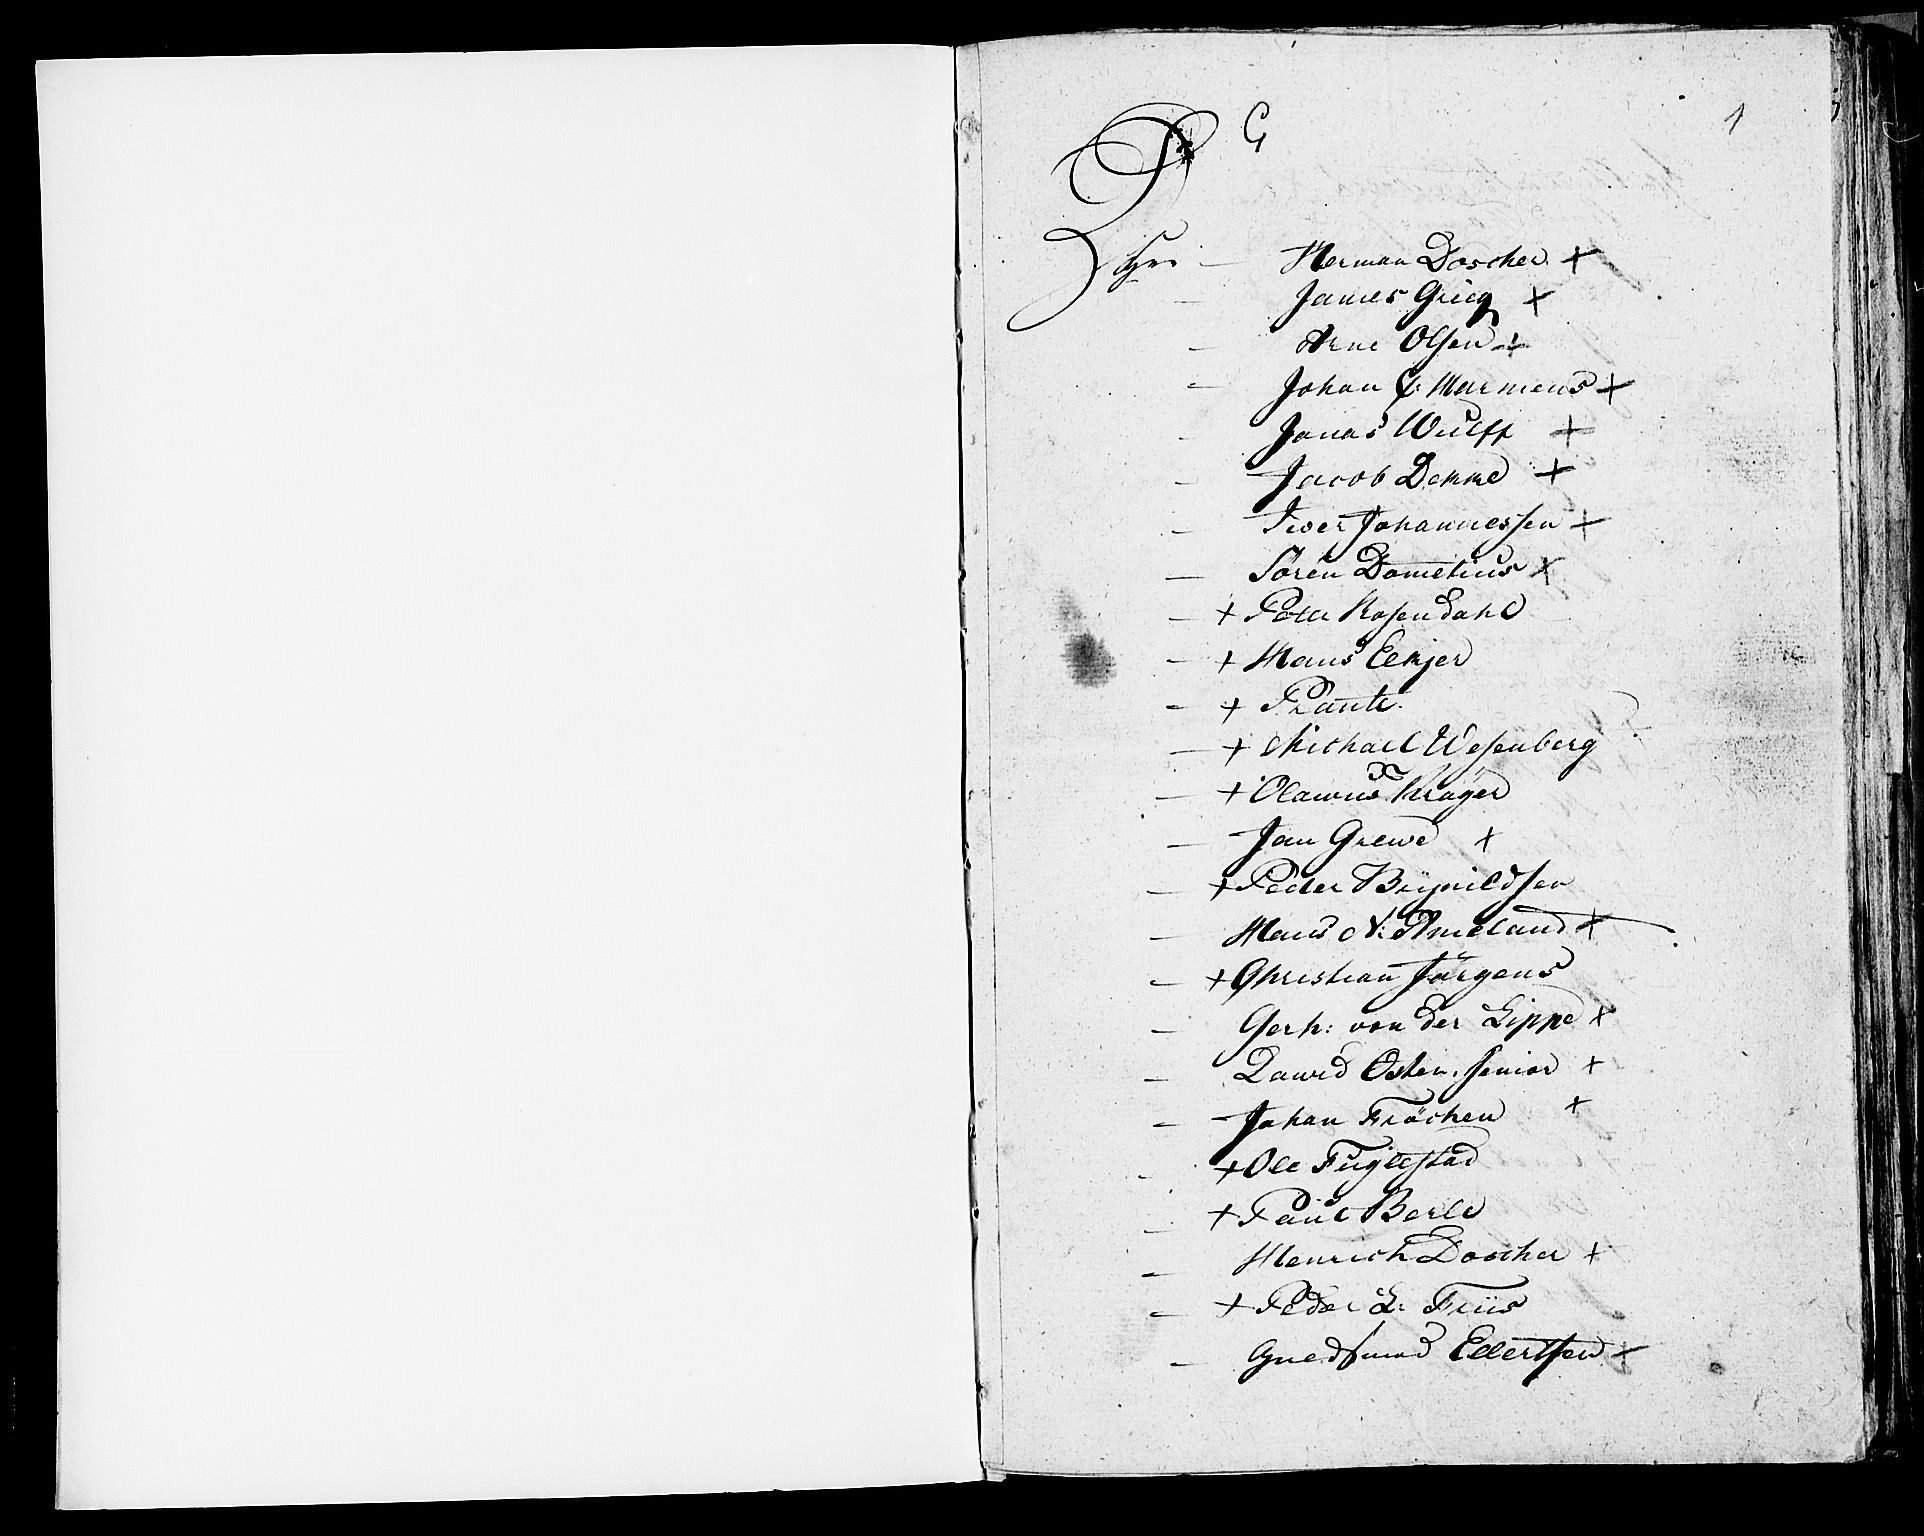 G
1
Herman Doscher +
— James Grieg +
— Arne Olsen +
— Johan C: Harmens +
— Jonas Wulff +
— Jacob Dekke +
— Iver Johannessen +
— Sören Dometius +
— + Peter Rosendahl
— + Hans
— + Plante.
— + Michael Wesenberg
— + Olavus Kröyer
— Jan Grewe +
— + Peder Brynildsen
— Hans N: Ameland +
— + Christian Jürgens
— Gerh: von der Lippe +
— David Osten, Senior +
— Johan Fröchen +
— + Ole Fuglestad
— + Paul Berle
— Henrich Doscher +
— + Peder L: Friis
— Gudmund Ellertsen +